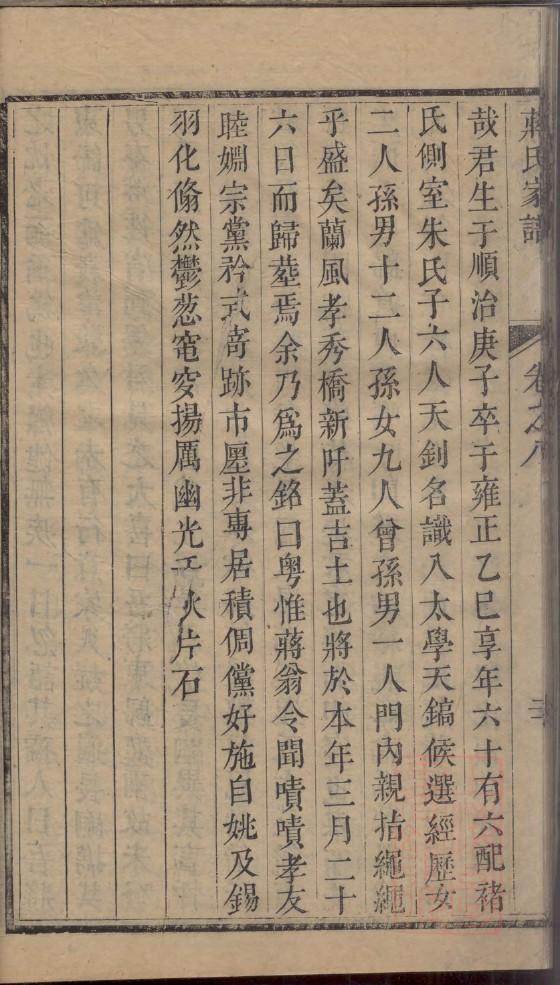 蔣氏家譜 卷之八
哉君生于順治庚子卒于雍正乙巳享年六十有六配褚
氏側室朱氏子六人天釗名識入太學天鎬候選經歷女
二人孫男十二人孫女九人曾孫男一人門內親拮繩繩
乎盛矣蘭風孝秀橋新吁葢吉土也將於本年三月二十
六日而歸塟焉余乃為之銘曰粵惟蔣翁令聞嘖嘖孝友
睦婣宗黨矜式竒跡市廛非專居積倜儻好施自姚及錫
羽化翛然鬱葱窀穸揚厲幽光千秋片石